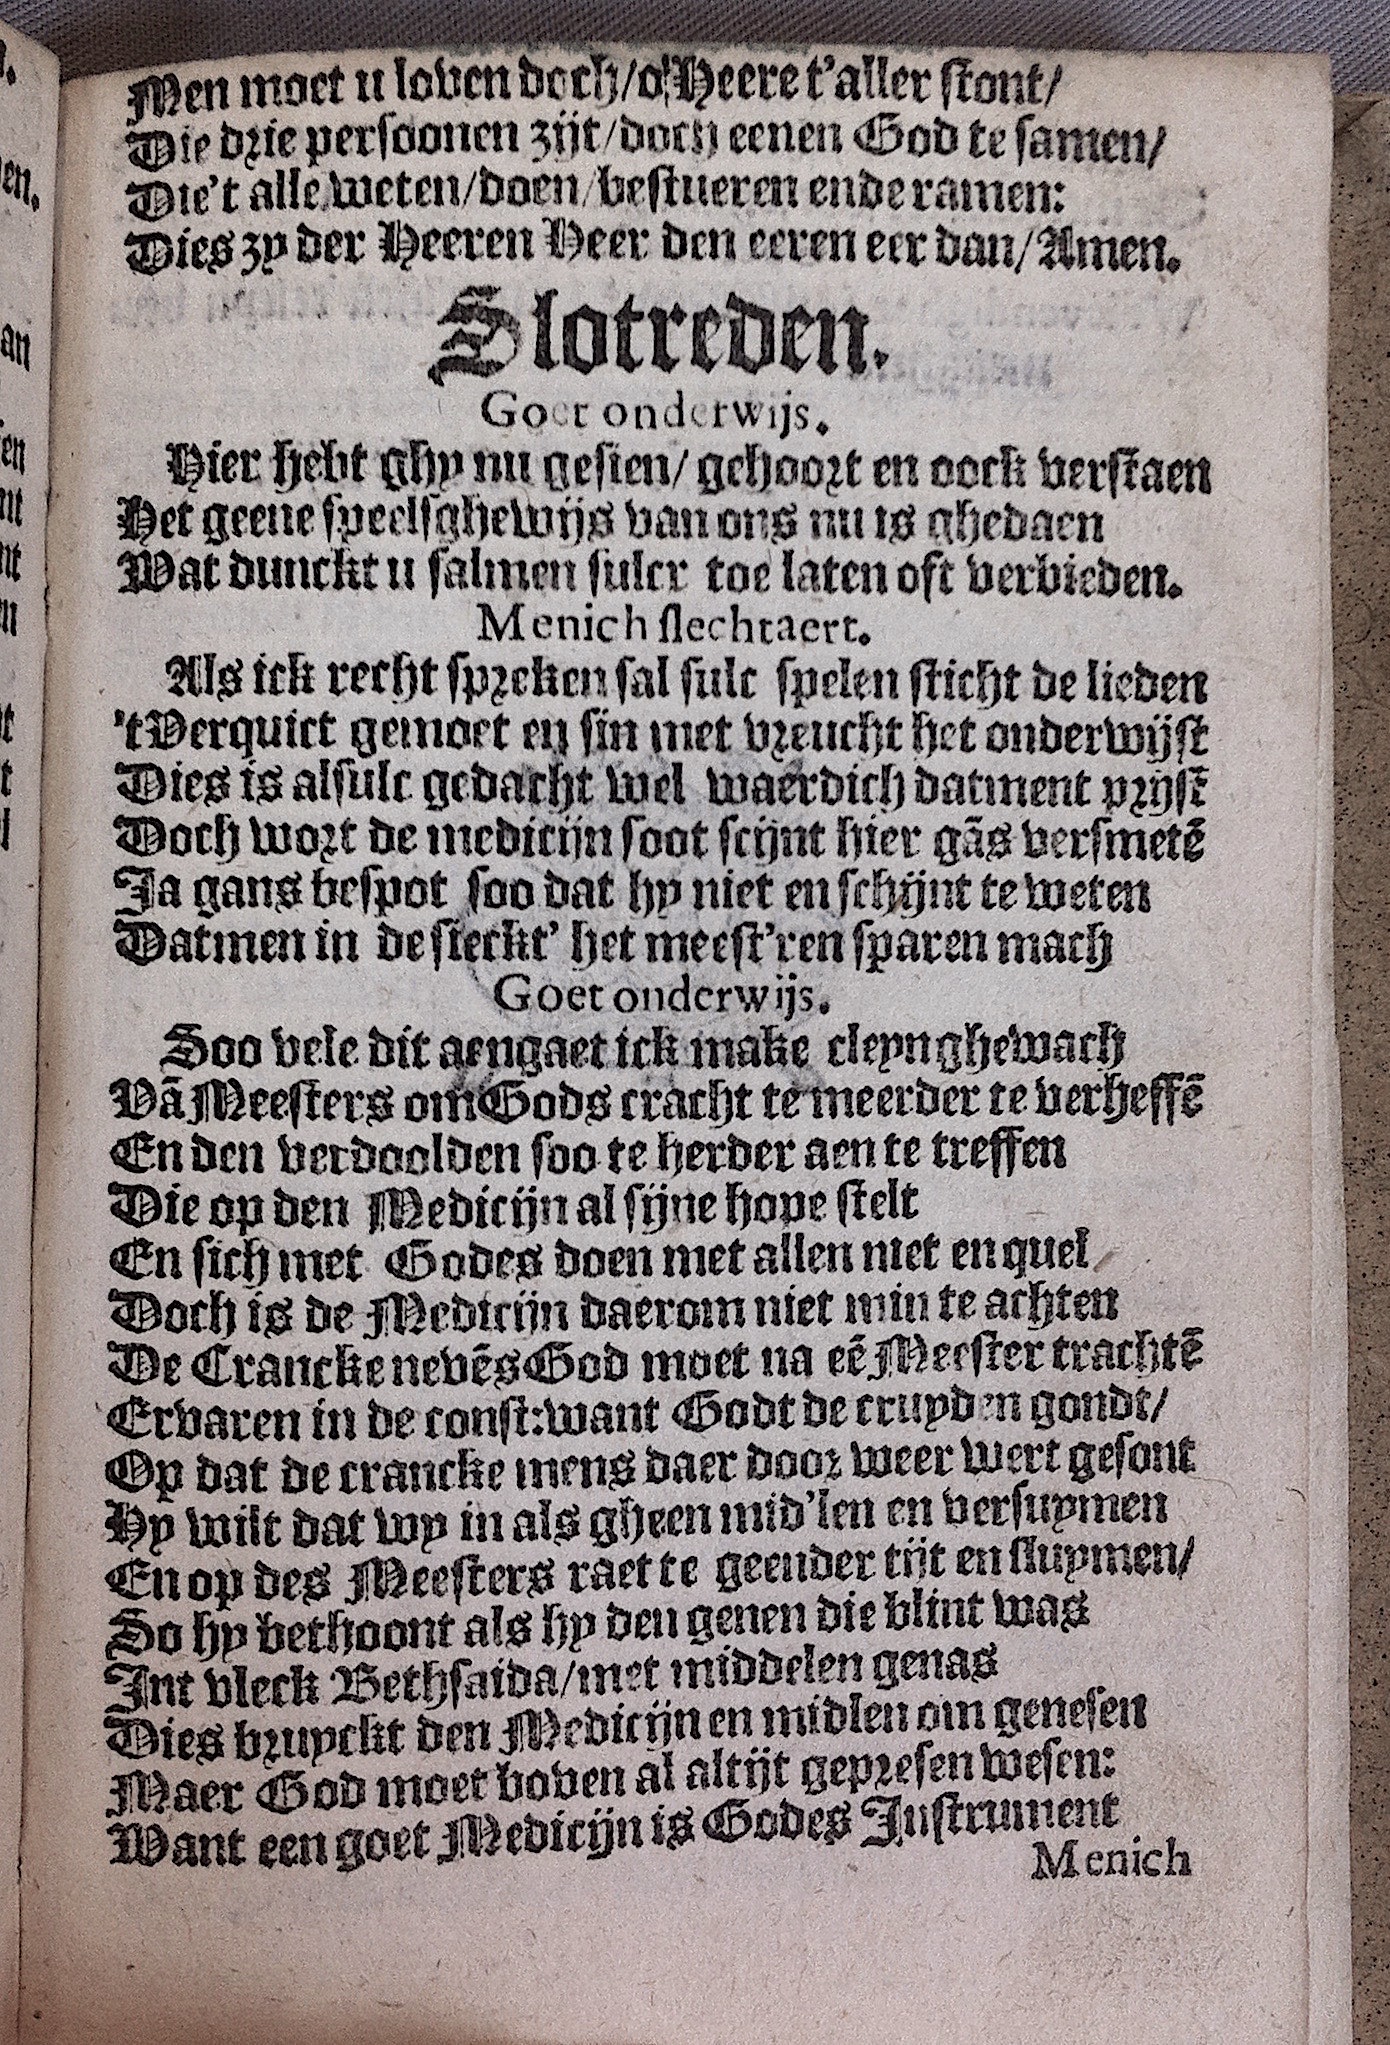 Men moet u loven doch/o Heere t'aller stont/
Die drie persoonen zijt/doch eenen God te samen/
Die't alle weten/doen/bestueren ende ramen:
Dies zy der Heeren Heer den eeren eer dan/Amen.
Slotreden.
Goet onderwijs.
Hier hebt ghy nu gesien/ gehoort en oock verstaen
Het geene speelsghewijs van ons nu is ghedaen
Wat dunckt u salmen sulcx toe laten oft verbieden.
Menich slechtaert.
Als ick recht spreken sal sulc spelen sticht de lieden
't Verquict gemoet en sin met vreucht het onderwijst
Dies is alsulc gedacht wel waerdich datment prijst
Doch wort de medicijn soot scijnt hier gãs versmetẽ
Ja gans bespot soo dat hy niet en schijnt te weten
Datmen in de sieckt' het meest'ren sparen mach
Goet onderwijs.
Soo vele dit aengaet ick make cleyn ghewach
Vã Meesters om Gods cracht te meerder te verheffẽ
En den verdoolden soo te herder aen te treffen
Die op den Medicijn al sijne hope stelt
En sich met Godes doen met allen niet en quel
Doch is de Medicijn daerom niet min te achten
De Crancke nevẽs God moet na eẽ Meester trachtẽ
Ervaren in de const:want Godt de cruyden gondt/
Op dat de crancke mens daer door weer wert gesont
Hy wilt dat wy in als gheen mid'len en versuymen
En op des Meesters raet te geender tijt en sluymen/
So hy bethoont als hy den genen die blint was
Int vleck Bethsaida/met middelen genas
Dies bruyckt den Medicijn en midlen om genesen
Maer God moet boven al altijt gepresen wesen:
Want een goet Medicijn is Godes Instrument
Menich